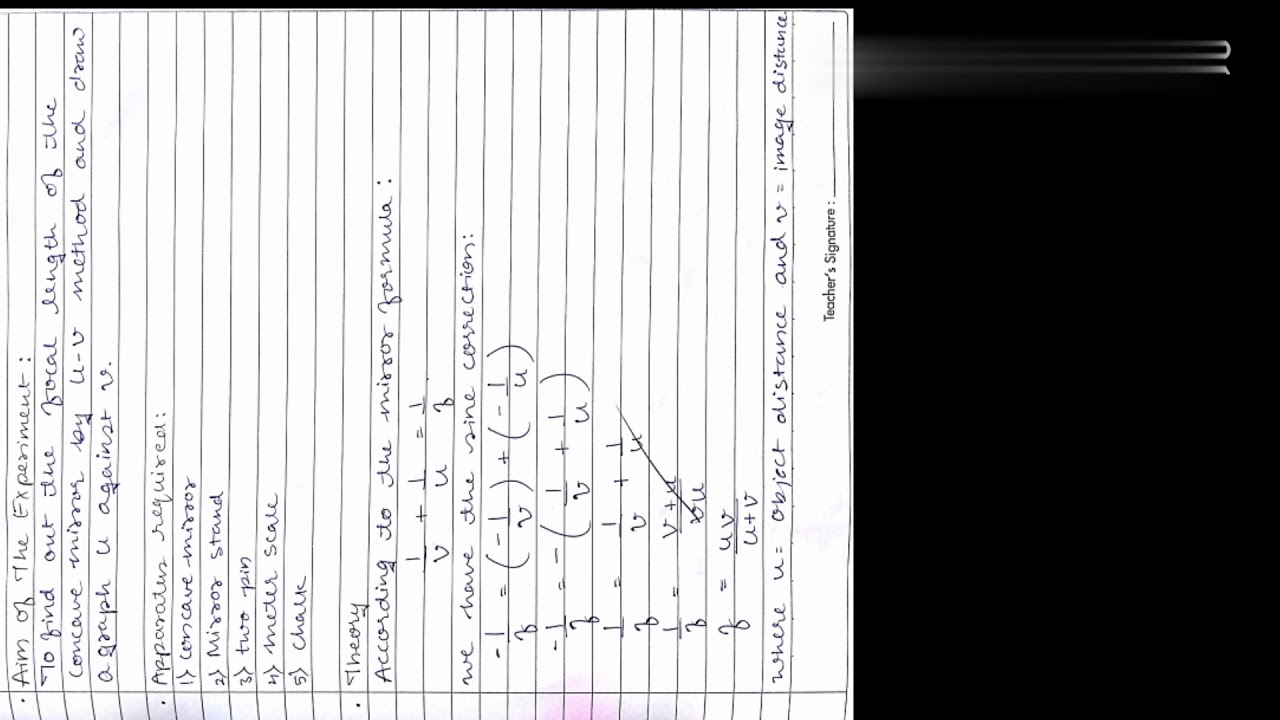 • Aim of The Experiment :
To find out the focal length of the
concave mirror by u-v method and draw
a graph u against v.
• Apparates required:
1) concave mirror
2) Mirror stand
3) two pin
4) meter scale
5) chalk
• Theory
According to the mirror formula :
1/v + 1/u = 1/f
we have the sine correction:
- 1/f = (- 1/v) + (- 1/u)
- 1/f = - (1/v + 1/u)
1/f = 1/v + 1/u
1/f = v+u/vu
f = uv/u+v
where u= object distance and v = image distance
Teacher's Signature :